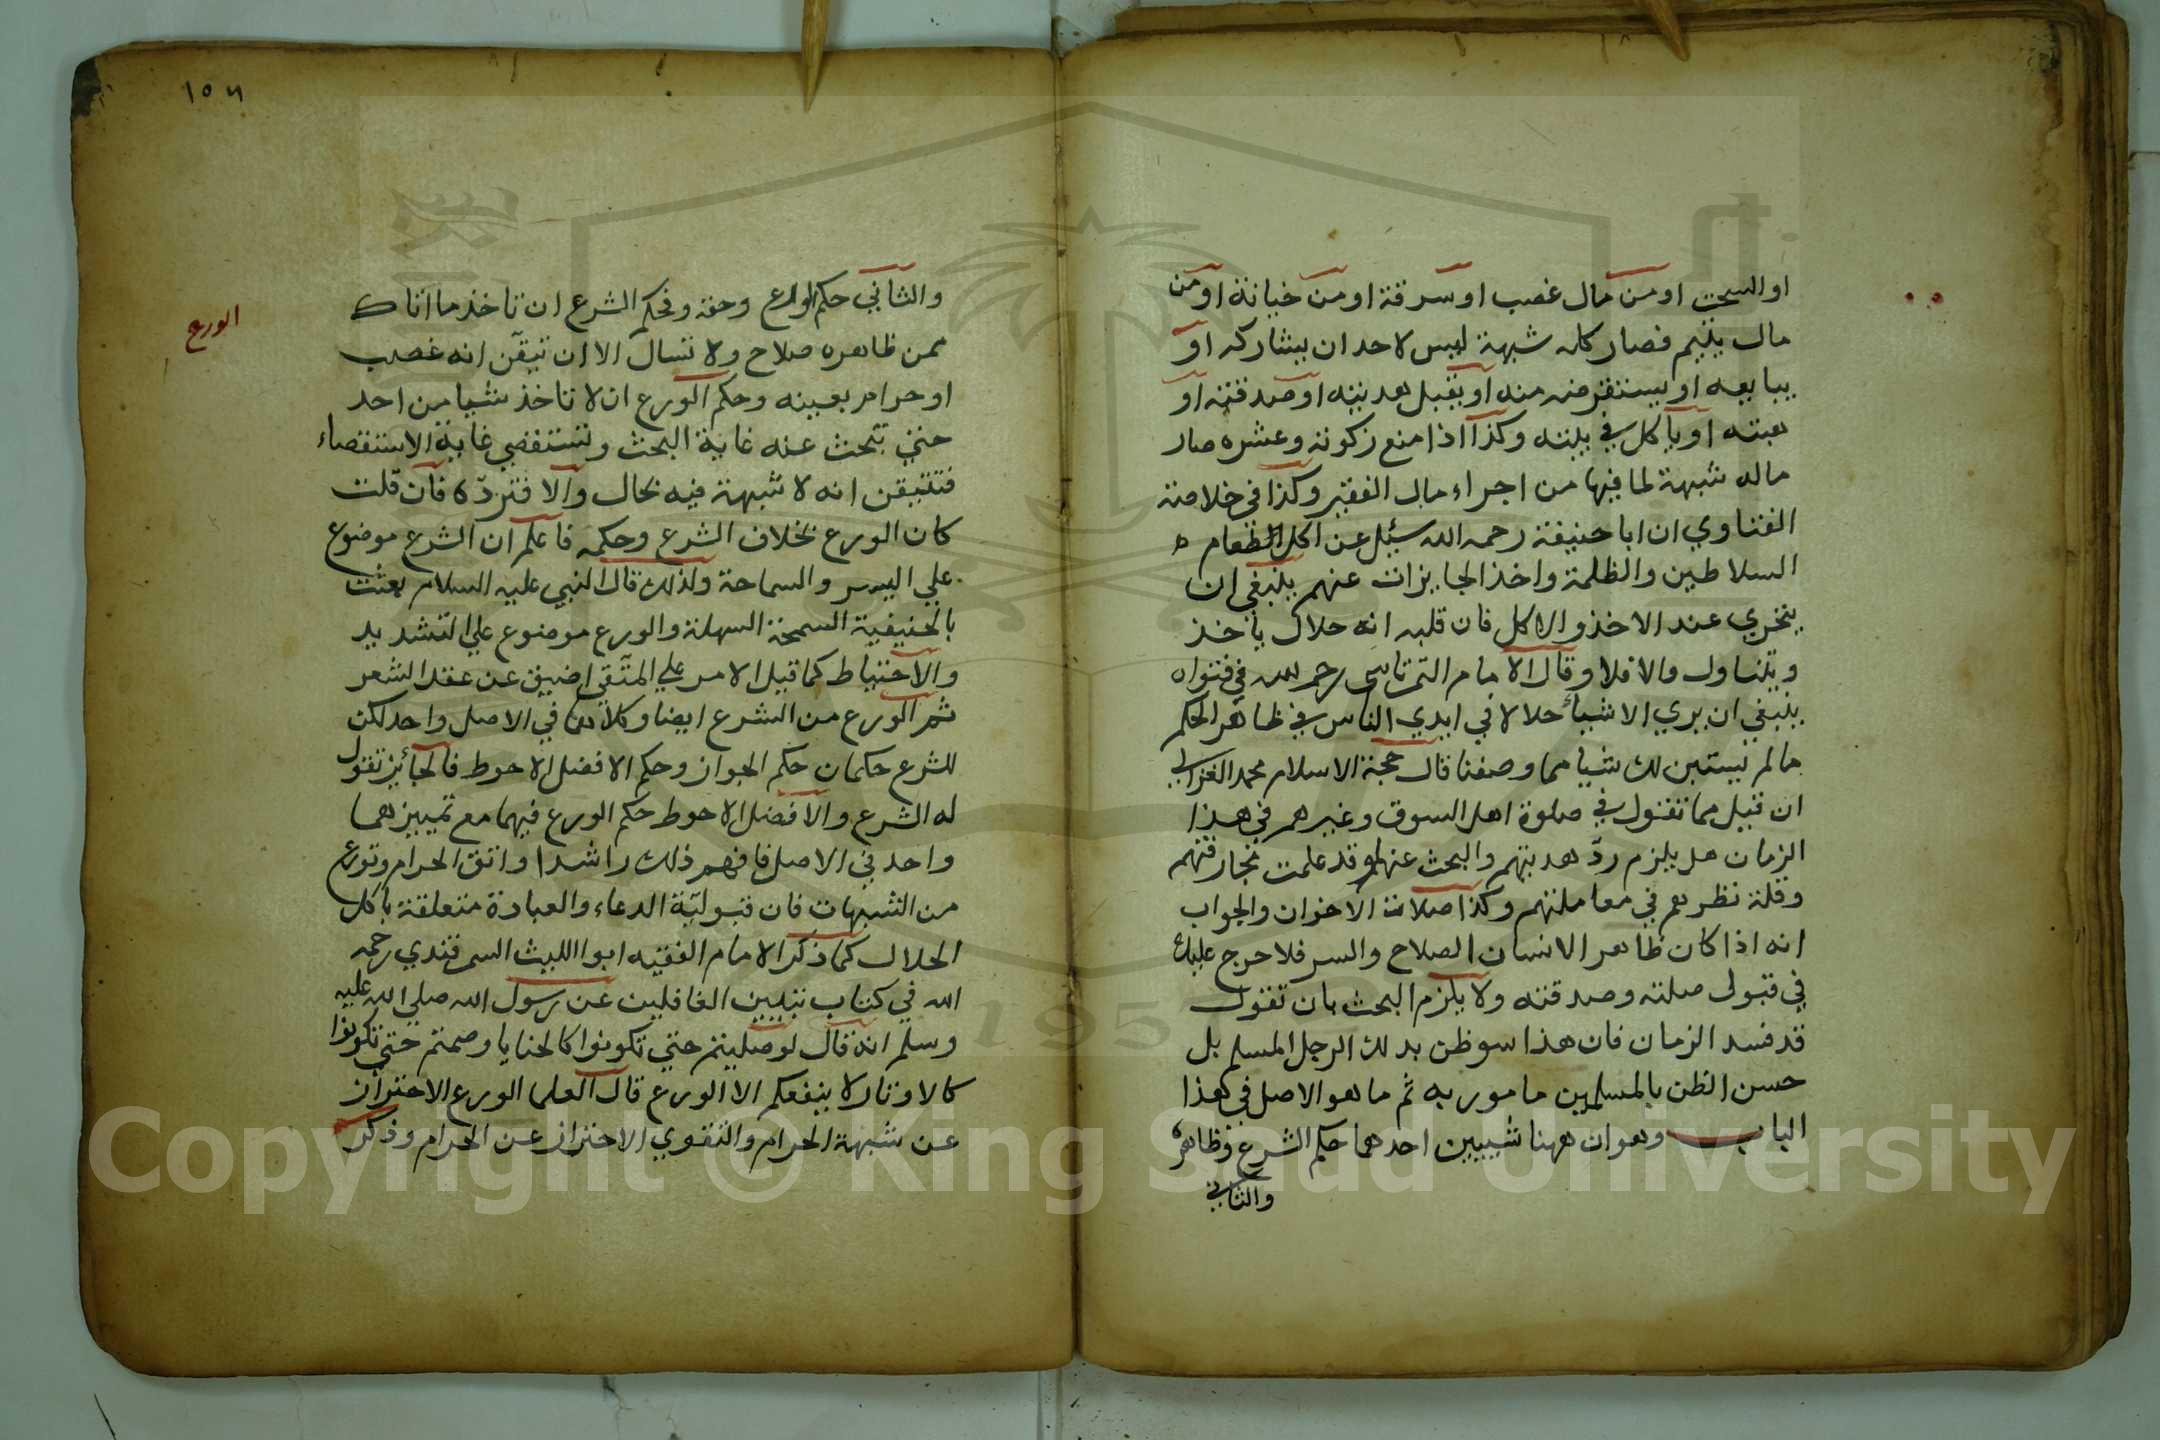 او السحت او من مال غصب او سرقة او من خيانة او من
مال يتيم فصار كله شبهة ليس لاحد ان يشاركه او
يبايعه او يستقرضه منه او يقبل هديته او صدقته او
هبته او ياكل في بيته وكذا اذا منع زكوته وعشره صار
ماله شبهة لما فيها من اجراء مال الفقير وكذا في خلاصة
الفتاوي ان ابا حنيفة رحمه الله سئيل عن اكل الطعام
السلاطين والظلمة واخذ الجايزات عنهم ينبغي ان
يتحري عند الاخذ والاكل فان قلبه انه حلال ياخذ
ويتناول والا فلا وقال الامام التمرتاسي رحمه الله في فتواه
ينبغي ان يري الاشياء حلالا في ايدي الناس في ظاهر الحكم
مالم يستبن لك شيا مما وصفنا قال حجة الاسلام محمد الغزالي
ان قيل مما تقول في صلوة اهل السوق وغيرهم في هذا
الزمان هل يلزم ردّ هديتهم والبحث عنهم وقد علمت مجازفتهم
وقلة نظرهم في معاملتهم وكذا صلات الاخوان والجواب
انه اذا كان ظاهر الانسان الصلاح والستر فلا حرج عليك
في قبول صلته وصدقته ولا يلزم البحث بان تقول
قد فسد الزمان فان هذا سو ظن بذلك الرجل المسلم بل
حسن الظن بالمسلمين مامور به ثم ما هو الاصل في هذا
الباب وهو ان ههنا شييين احدهما حكم الشرع وظاهره
والثاني
١٥٦
الورع
والثاني حكم الورع وحقه وفحكم الشرع ان تاخذ ما اتاك
ممن ظاهره صلاح ولا تسال الا ان تيقّن انه غصب
او حرام بعينه وحكم الورع ان لا تاخذ شيا من احد
حتي تبحث عنه غاية البحث وتستقضي غاية الاستقصاء
فتتيقن انه لا شبهة فيه بحال والا فتردّه فان قلت
كان الورع بخلاف الشرع وحكمه فاعلم ان الشرع موضوع
علي اليسر والسماحة ولذلك قال النبي عليه السلام بعثت
بالحنيفية السمحة السهلة والورع موضوع علي التشديد
والاحتياط كما قيل الامر علي المتّقي اضيق عن عقد الشعر
ثم الورع من الشرع ايضا وكلاهما في الاصل واحد لكن
للشرع حكمان حكم الجواز وحكم الافضل الاحوط فالجائيز تقول
له الشرع والافضل الاحوط حكم الورع فيهما مع تمييزهما
واحد في الاصل فافهم ذلك راشدا واتق الحرام وتورع
من الشبهات فان قبوليّة الدعاء والعبادة متعلقة باكل
الحلال كما ذكر الامام الفقيه ابو الليث السمرقندي رحمه
الله في كتاب تنبيين الغافلين عن رسول الله صلي الله عليه
وسلم انه قال لو صليتم حتي تكونوا كالحنايا وصمتم حتي تكونوا
كالاوتار لا ينفعكم الا الورع قال العلما الورع الاحتراز
عن شبهة الحرام والتقوي الاحتراز عن الحرام وذكر
Copyright © King Saud University
1957